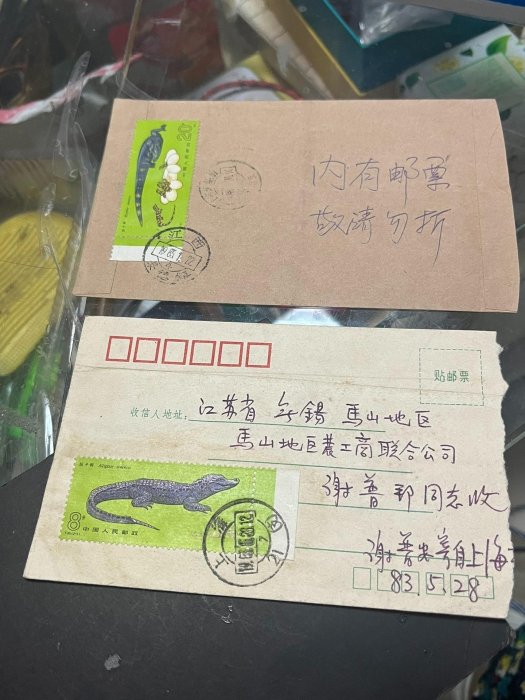 20
内有邮票
敬请勿折
江西
贴邮票
收信人地址:
江苏省 无锡 馬山地区
馬山地区農工商联合公司
谢普邦同志收
扬子鳄 Alligator sinensis
8
中国人民邮政
上海
21
上海
83.5.28